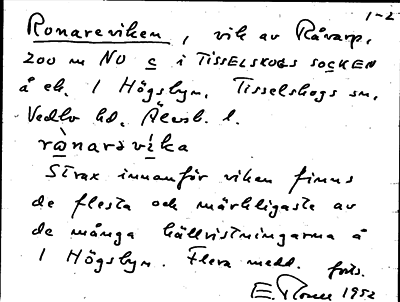 1-2
Ronareviken, vik av Råvarp,
200 m NO c i TISSELSKOGS SOCKEN
å ek. 1 Högsbyn. Tisselskogs sn,
Vedbo hd. Älvsb. l.
rànarə víka
Strax innanför viken finns
de flesta och märkligaste av
de många hällristningarna å
1 Högsbyn. Flera medd. forts.
E. 1952